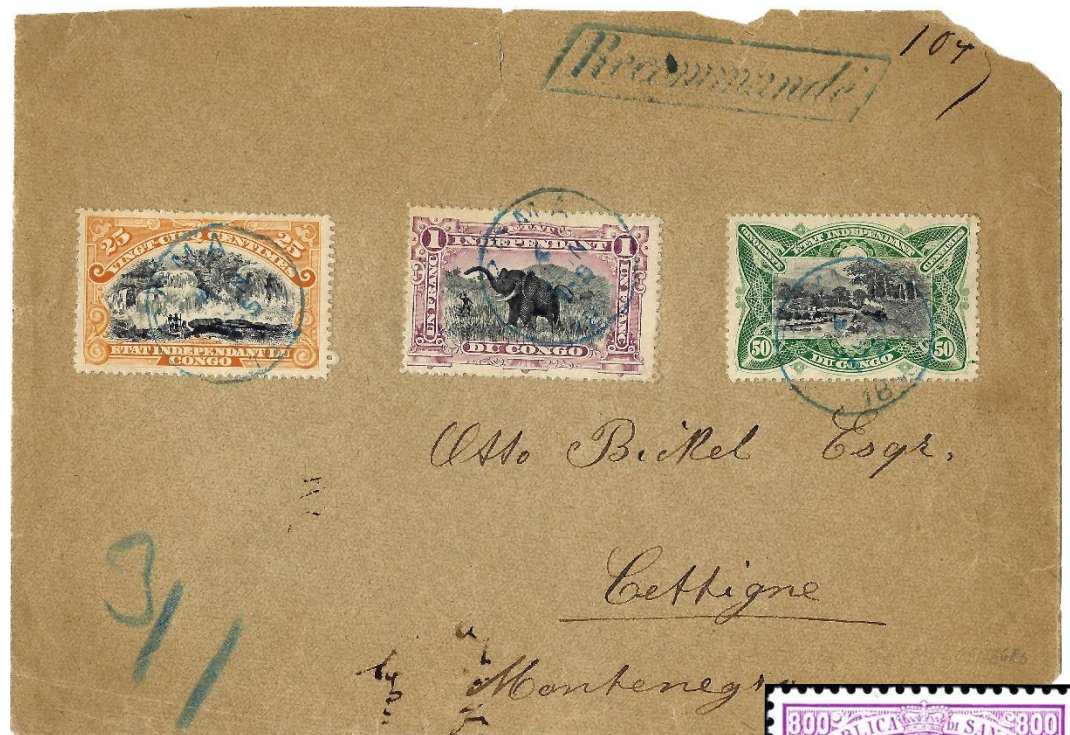 Recommandé
104
25 25
VINGT-CINQ CENTIMES
ETAT INDEPENDANT DU
CONGO
ETAT
1 INDEPENDANT 1
UN FRANC UN FRANC
DU CONGO
ETAT INDEPENDANT
CENTIMES
50 DU CONGO 50
Otto Bickel Esqr.
Cettigne
Montenegro
3/1
800 800
BLICA DI SAN